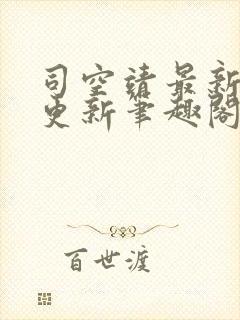 司空靖最新
更新笔趣阁
百世渡